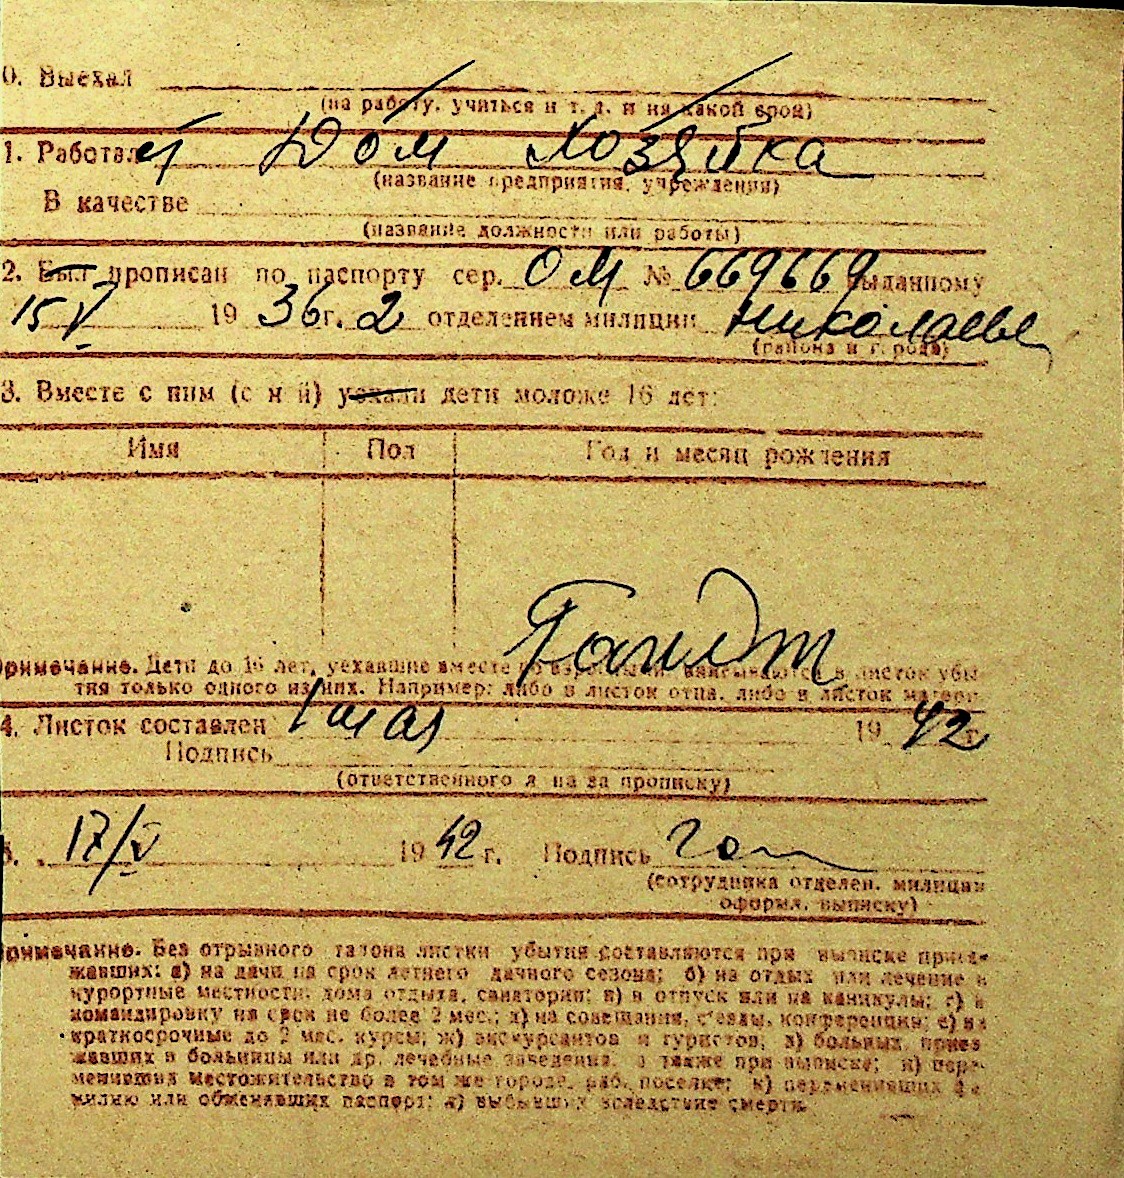 0. Выехал
(на работу, учиться и т. д. и на какой срок)
1. Работает Дом Хозяйка
(название предприятия, учреждения)
В качестве
(название должности или работы)
2. Был прописан по паспорту сер. ОМ № 669669 выданному
15 V 1936 г. 2 отделением милиции Николаеве
(района и города)
3. Вместе с ним (с ней) уехали дети моложе 16 лет:
Имя Пол Год и месяц рождения
Примечание. Дети до 16 лет, уехавшие вместе со взрослыми вписываются в листок убы-
тия только одного из них. Например: либо в листок отца, либо в листок матери
4. Листок составлен 1 мая 1942 г.
Подпись
(ответственного за прописку)
5. 17/V 1942 г. Подпись
(сотрудника отделен. милиции
оформл. выписку)
Примечание. Без отрывного талона листки убытия составляются при выписке приез-
жавших: а) на дачи на срок летнего дачного сезона; б) на отдых или лечение в
курортные местности, дома отдыха, санатории; в) в отпуск или на каникулы; г) в
командировку на срок не более 2 мес.; д) на совещания, съезды, конференции; е) на
краткосрочные до 2 мес. курсы; ж) экскурсантов и туристов; з) больных, приез
жавших в больницы или др. лечебные заведения, а также при выписке; и) пере-
менивших местожительство в том же городе, раб. поселке; к) переменивших фа-
милию или обменявших паспорт; л) выбывших вследствие смерти.